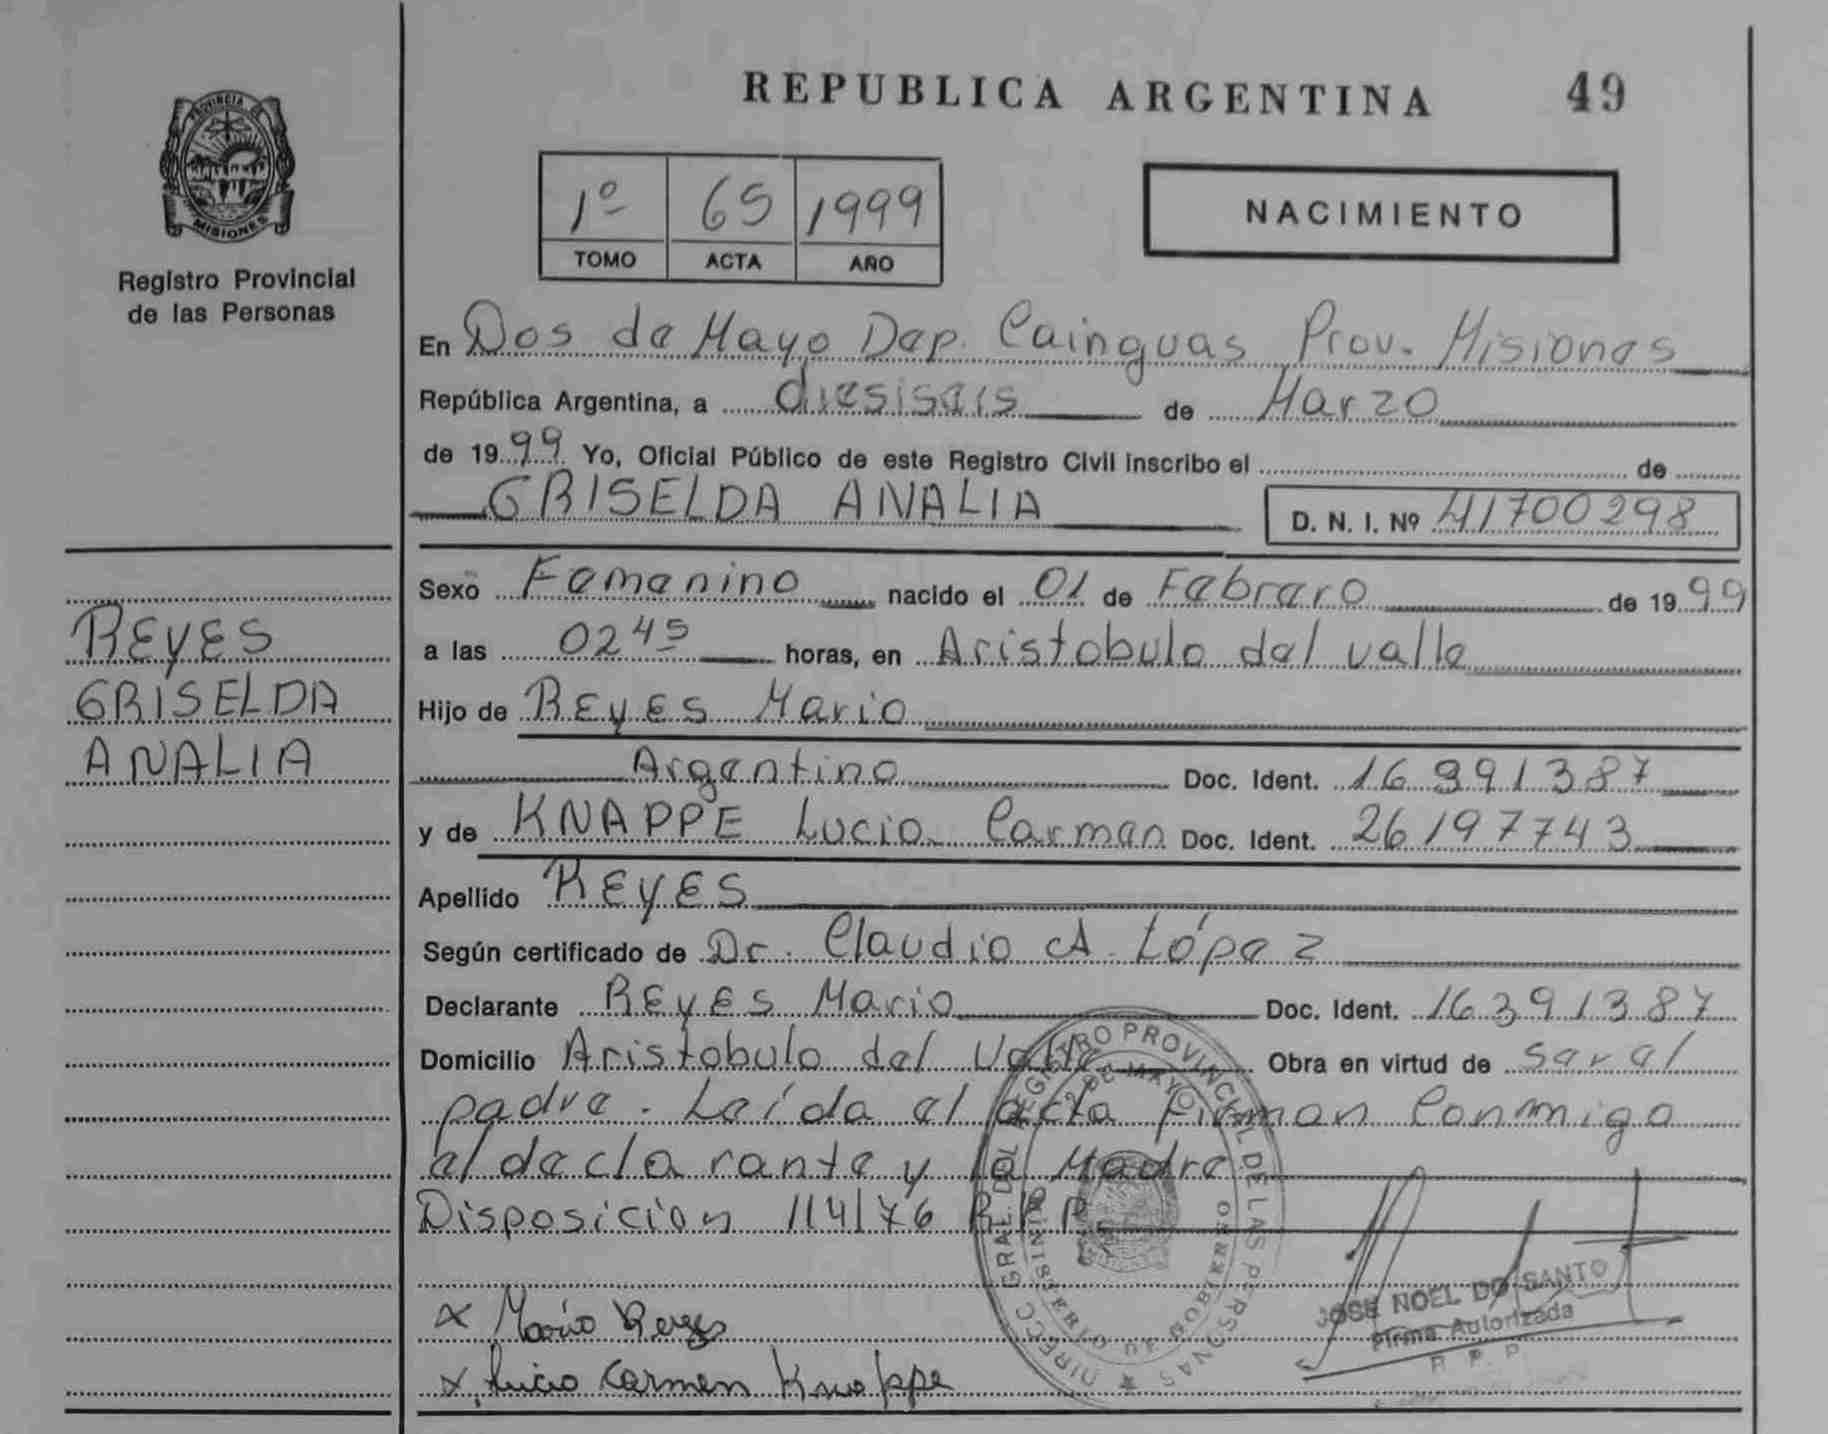 REPUBLICA ARGENTINA 49
PROVINCIA DE
MISIONES
Registro Provincial
de las Personas
1º 65 1999
TOMO ACTA AÑO
NACIMIENTO
En Dos de Mayo Dep. Cainguas Prov. Misiones
República Argentina, a diesiseis de Marzo
de 1999 Yo, Oficial Público de este Registro Civil inscribo el de
GRISELDA ANALIA D. N. I. Nº 41700298
Sexo Femenino nacido el 01 de Febrero de 1999
a las 0245 horas, en Aristobulo del valle
Hijo de REYES Mario
Argentino Doc. Ident. 16391387
y de KNAPPE Lucia Carmen Doc. Ident. 26197743
Apellido REYES
Según certificado de Dr. Claudio A. López
Declarante REYES Mario Doc. Ident. 16391387
Domicilio Aristobulo del Valle Obra en virtud de ser el
padre. Leída el acta firman Conmigo
el declarante y la Madre
Disposicion 114/76 R.P.P.
REYES
GRISELDA
ANALIA
x Mario Reyes
x Lucia Carmen Knappe
DIRECC. GRAL. DEL REGISTRO PROVINCIAL DE LAS PERSONAS
2 DE MAYO
MINISTERIO DE GOBIERNO
JOSE NOEL DO SANTO
Firma Autorizada
R. P. P.